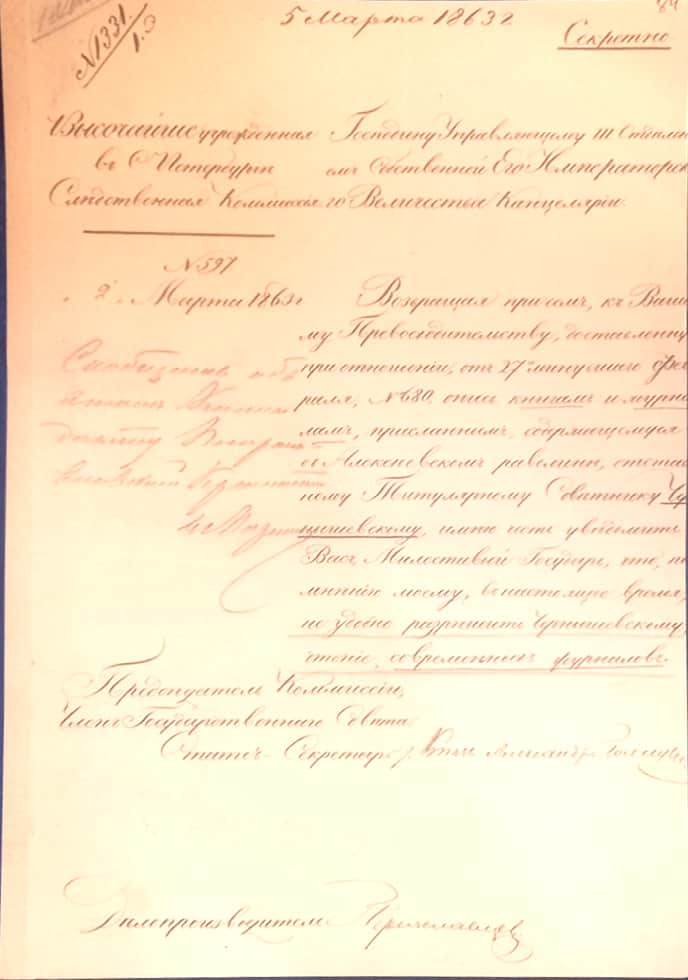 5 Марта 1863 г
84
№ 1331.
1. Э
Секретно
Высочайше учрежденная
въ С Петербургѣ
Слѣдственная Коммиссія
№ 597
2 Марта 1863 г
Господину Управляющему III Отдѣлені
емъ Собственной Его Императорск
го Величества Канцеляріи
Возвращая при семъ, къ Ваше
му Превосходительству, доставленную
при отношеніи, отъ 27 минувшаго Фев
раля, № 680, опись книгамъ и журна
ламъ, присланнымъ, содержащемуся
въ Алексѣевскомъ равелинѣ, отстав
ному Титулярному Совѣтнику Чер
нышевскому, имѣю честь увѣдомить
Васъ, Милостивый Государь, что, по
мнѣнію моему, въ настоящее время,
не удобно разрѣшить Чернышевскому,
чтеніе современныхъ журналовъ.
Сообщить объ
Коменданту
4 Марта
Предсѣдатель Коммиссіи,
Членъ Государственнаго Совѣта
Статсъ-Секретарь, Князь Александръ Голицынъ
Дѣлопроизводитель